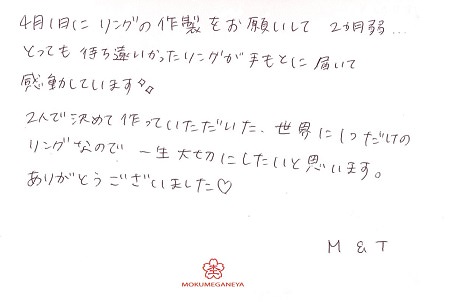 4月1日に リングの作製をお願いして 2ヵ月弱…
とっても 待ち遠いかったリングが手もとに 届いて
感動しています
2人で決めて作っていただいた、世界に1つだけの
リングなので 一生大切にしたいと思います。
ありがとうございました♡
M & T
MOKUMEGANEYA